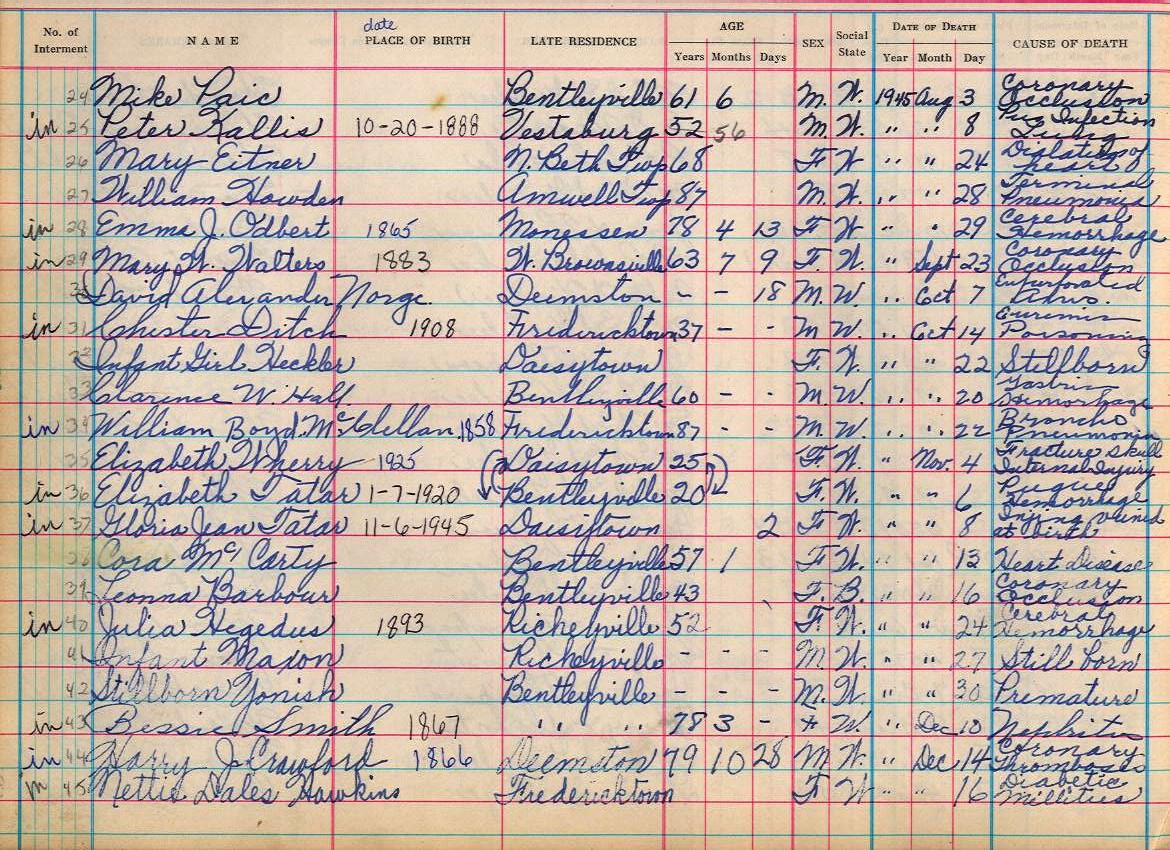 date
No. of Interment NAME PLACE OF BIRTH LATE RESIDENCE AGE Years Months Days SEX Social State DATE OF DEATH Year Month Day CAUSE OF DEATH
24 Mike Paic Bentleyville 61 6 M. W. 1945 Aug 3 Coronary Occlusion
in 25 Peter Kallis 10-20-1888 Vestaburg 52 56 M. W. " " 8 Infection Lung
26 Mary Eitner N. Beth Twp 68 F W " " 24 of Heart
27 William Howden Amwell Twp 87 M. W. " " 28 Terminal Pneumonia
in 28 Emma J. Odbert 1865 Monessen 78 4 13 F W " " 29 Cerebral Hemorrhage
in 29 Mary W. Walters 1883 W. Brownsville 63 7 9 F. W. " Sept 23 Coronary Occlusion
David Alexander Norge Deemston - - 18 M. W. " Oct 7
in 31 Chester Ditch 1908 Fredericktown 37 - - M W. " Oct 14 Poisoning
32 Infant Girl Heckler Daisytown F. W. " " 22 Stillborn
33 Clarence W. Hall Bentleyville 60 - - M. W. " " 20 Hemorrhage
in 34 William Boyd McClellan 1858 Fredericktown 87 - - M. W " " 22 Broncho Pneumonia
35 Elizabeth Wherry 1925 Daisytown 25 F. W. " Nov. 4 Fracture Skull Internal Injury
in 36 Elizabeth Tatar 1-7-1920 Bentleyville 20 F. W. " " 6 Hemorrhage
in 37 Gloria Jean Tatar 11-6-1945 Daisytown 2 F W. " " 8 at birth
38 Cora McCarty Bentleyville 57 1 F W. " " 13 Heart Disease
39 Leonna Barbour Bentleyville 43 F. B. " " 16 Coronary Occlusion
in 40 Julia Hegedus 1893 Richeyville 52 F. W. " " 24 Cerebral Hemorrhage
41 Infant Maxon Richeyville - - - M. W. " " 27 Still born
42 Stillborn Yonish Bentleyville - - - M. W. " " 30 Premature
in 43 Bessie Smith 1867 " " 78 3 - F W. " Dec 10 Nephritis
in 44 Harry J Crawford 1866 Deemston 79 10 28 M W. " Dec 14 Coronary Thromboses
in 45 Nettie Dales Hawkins Fredericktown F W " " 16 Diabetic Millities